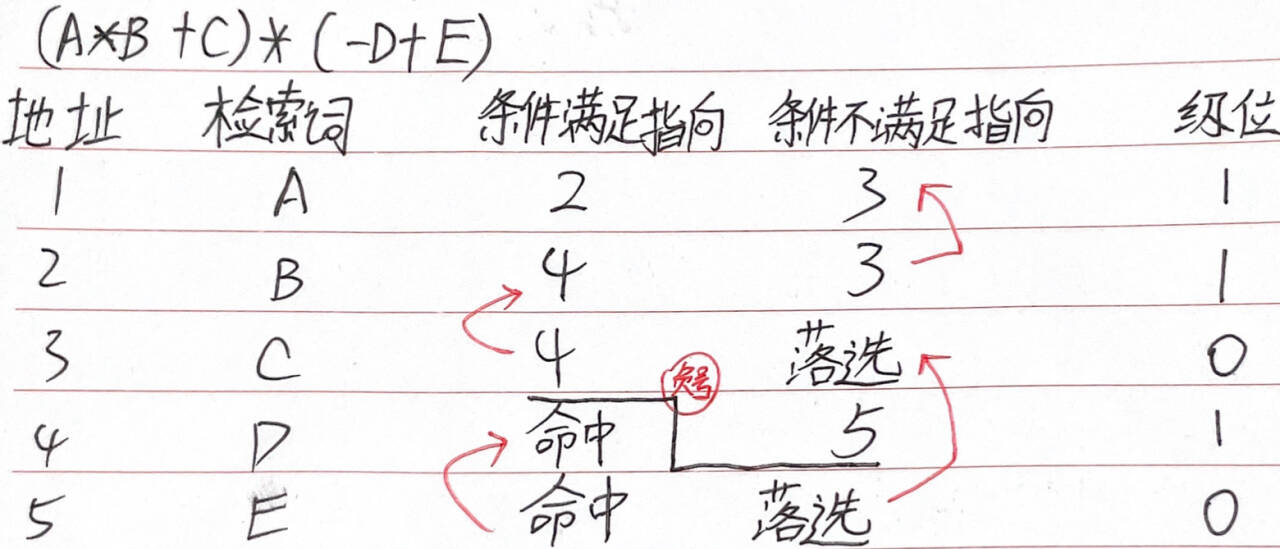 (A*B+C)*(-D+E)
地址 检索词 条件满足指向 条件不满足指向 级位
1 A 2 3 1
2 B 4 3 1
3 C 4 落选 0
负号
4 D 命中 5 1
5 E 命中 落选 0